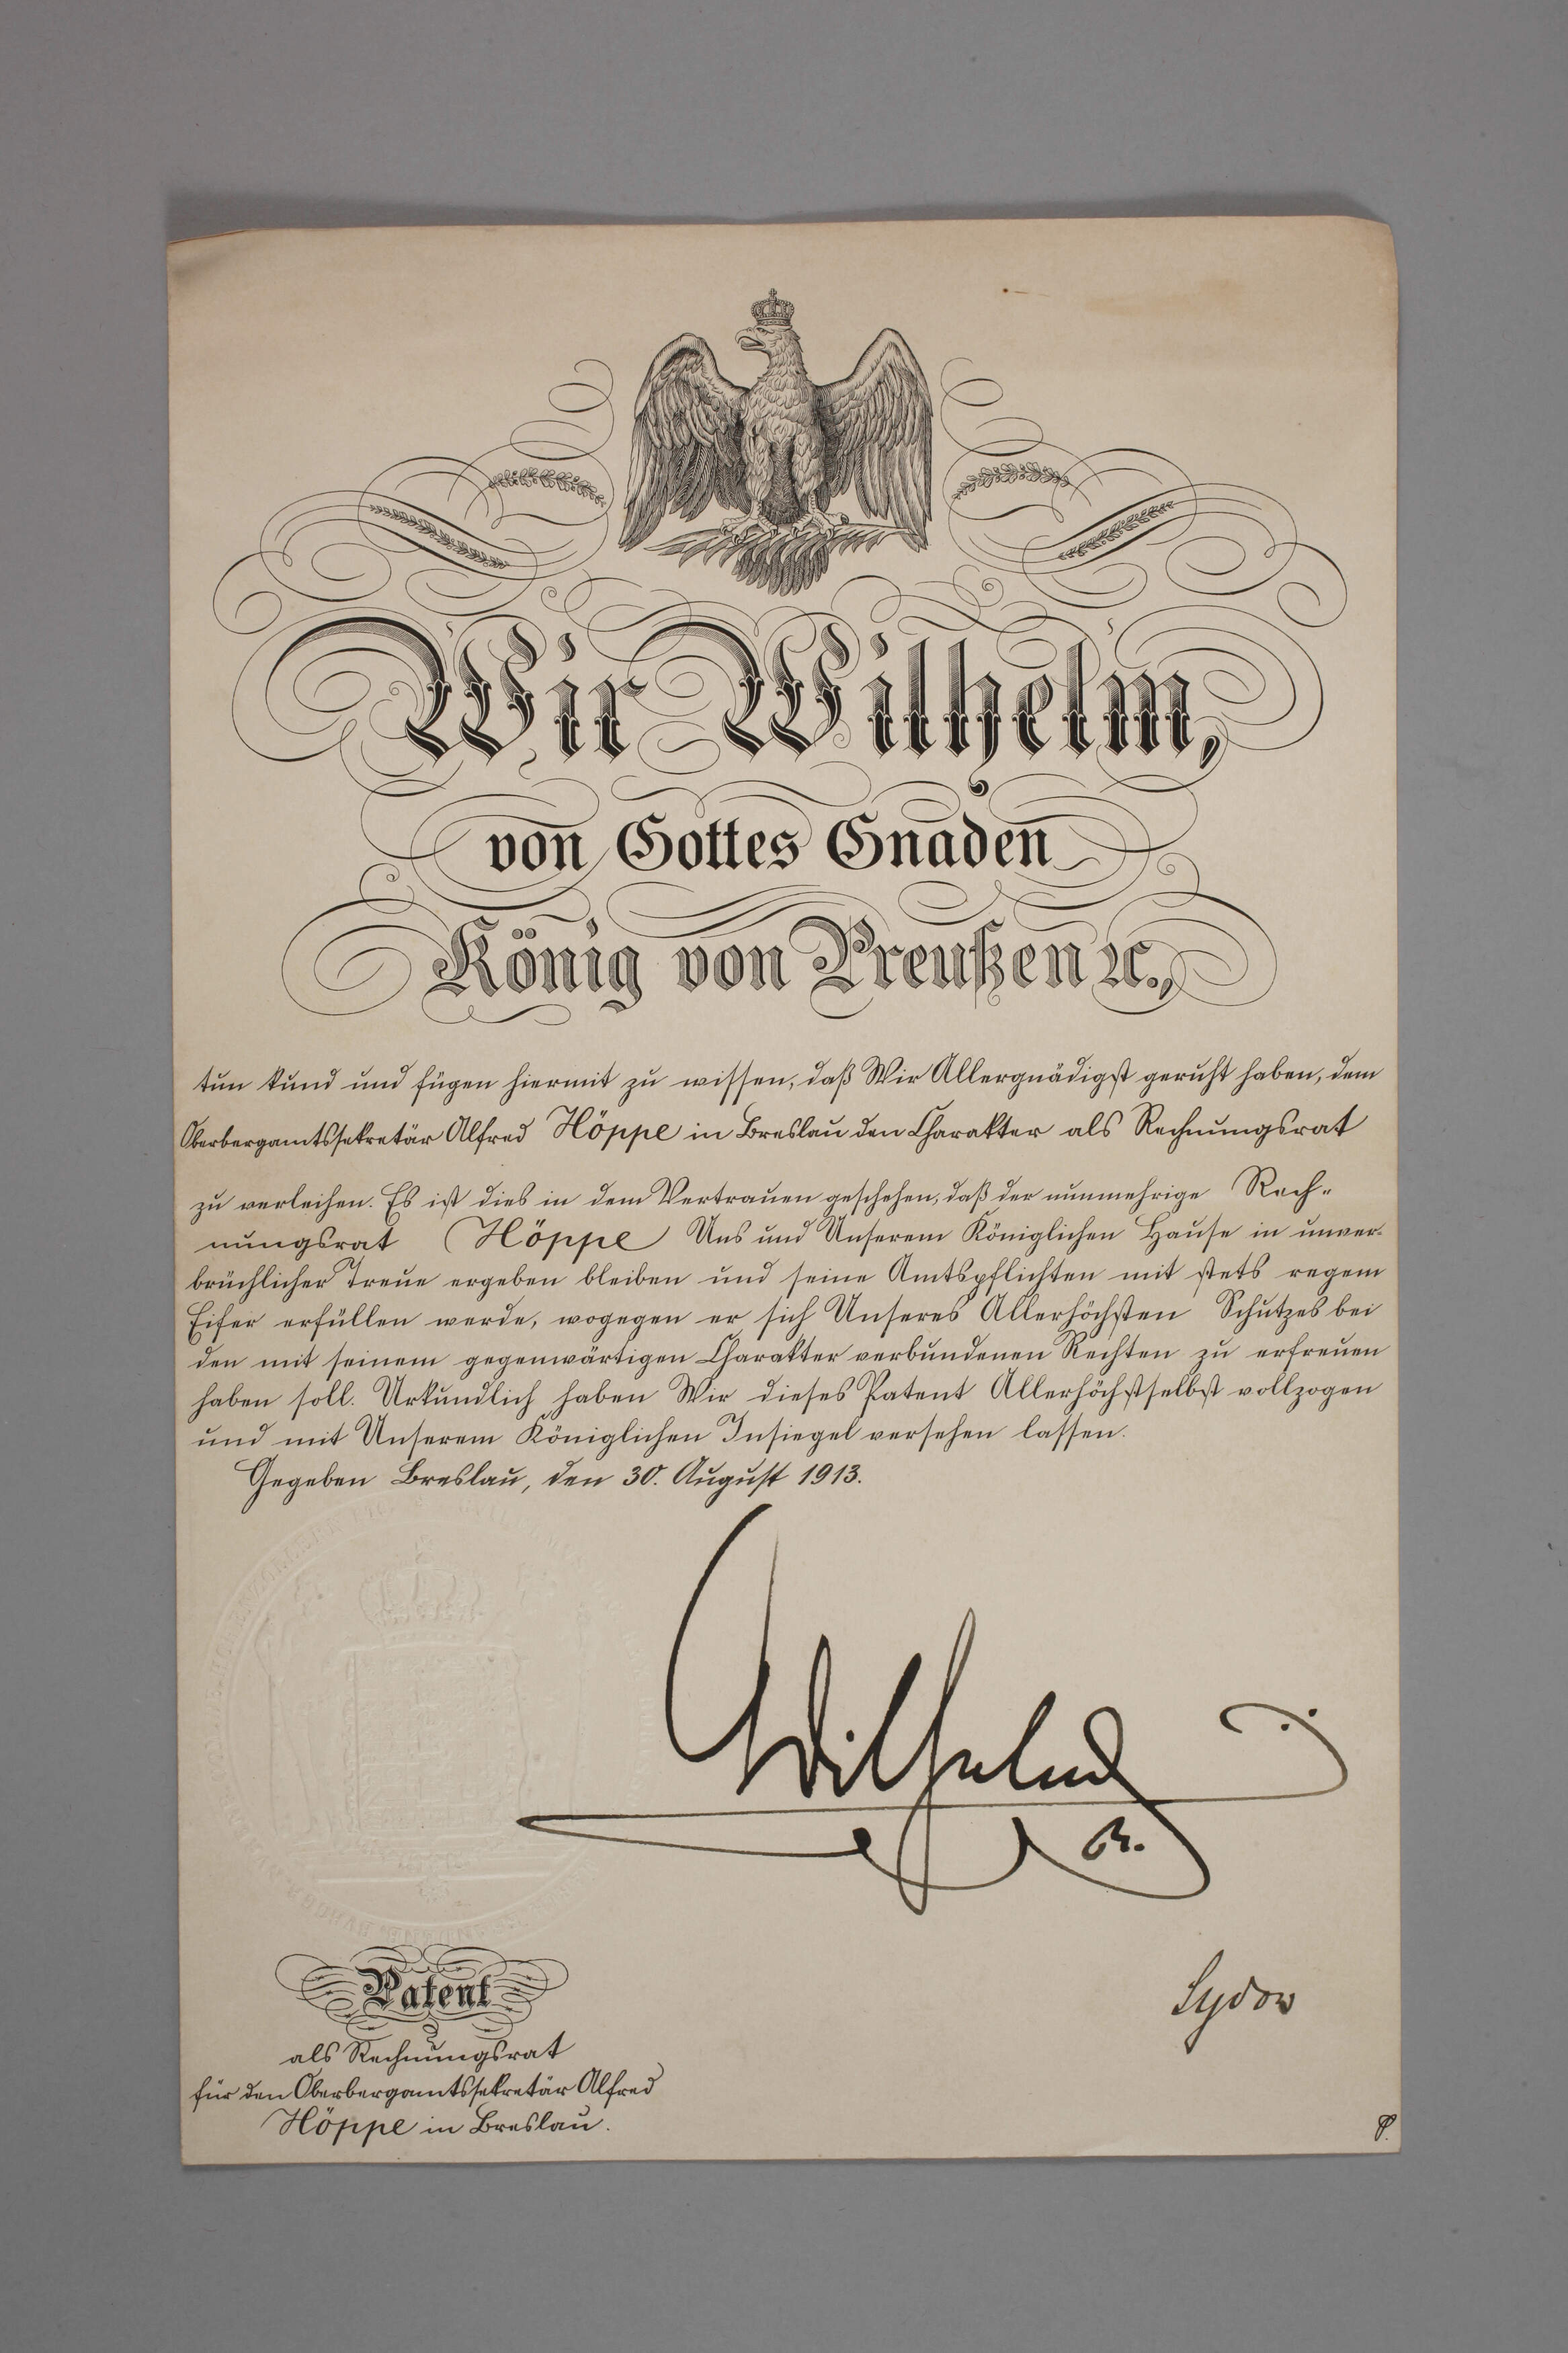 Wir Wilhelm,
von Gottes Gnaden
König von Preußen ꝛc.,
tun kund und fügen hiermit zu wissen, daß Wir Allergnädigst geruht haben, dem
Oberbergamtssekretär Alfred Höppe in Breslau den Charakter als Rechnungsrat
zu verleihen. Es ist dies in dem Vertrauen geschehen, daß der nunmehrige Rech-
nungsrat Höppe Uns und Unserem Königlichen Hause in unver-
brüchlicher Treue ergeben bleiben und seine Amtspflichten mit stets regem
Eifer erfüllen werde, wogegen er sich Unseres Allerhöchsten Schutzes bei
den mit seinem gegenwärtigen Charakter verbundenen Rechten zu erfreuen
haben soll. Urkundlich haben Wir dieses Patent Allerhöchstselbst vollzogen
und mit Unserem Königlichen Insiegel versehen lassen.
Gegeben Breslau, den 30. August 1913.
Wilhelm
R.
Sydow
Patent
als Rechnungsrat
für den Oberbergamtssekretär Alfred
Höppe in Breslau.
P.